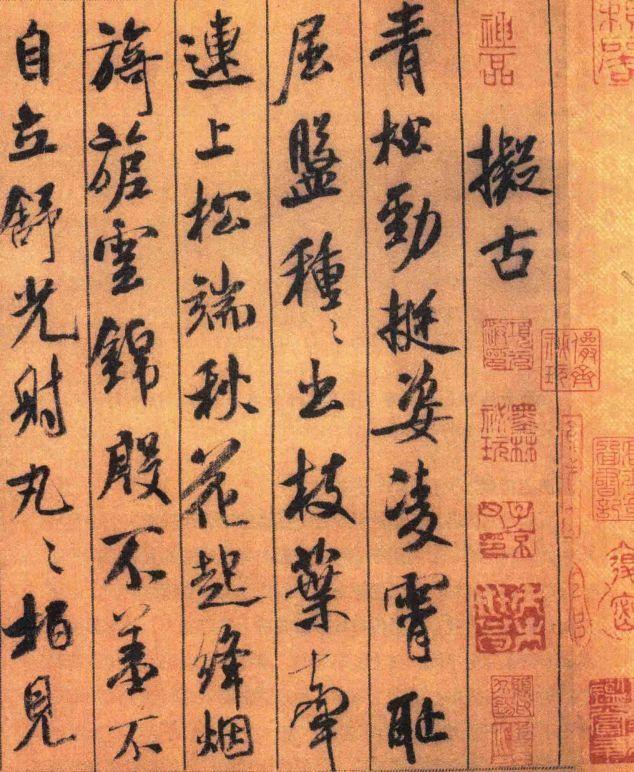 神品
擬古
青松勁挺姿凌霄恥
屈盤種〻出枝葉牽
連上松端秋花起絳烟
旖旎雲錦殷不羞不
自立舒光射丸〻柏見
墨林秘玩